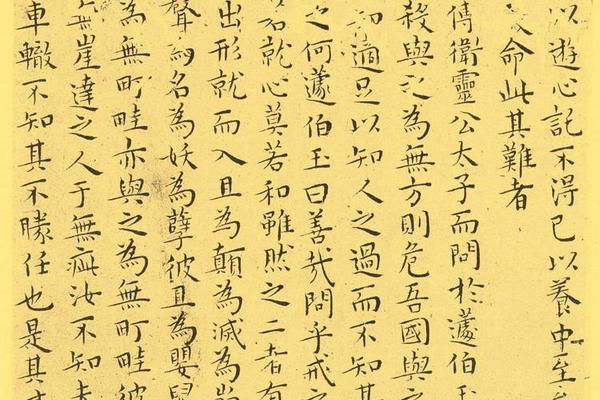 以遊心記不得已以養中至
命此其難者
傅衛靈公太子而問於蘧伯玉
殺與之為無方則危吾國與之
知適足以知人之過而不知其
之何蘧伯玉曰善哉問乎戒之
若就心莫若和雖然之二者有
出形就而入且為顛為滅為崩
聲為名為妖為孽彼且為嬰兒
為無町畦亦與之為無町畦彼
無崖達之人于無疵汝不知夫
車轍不知其不勝任也是其